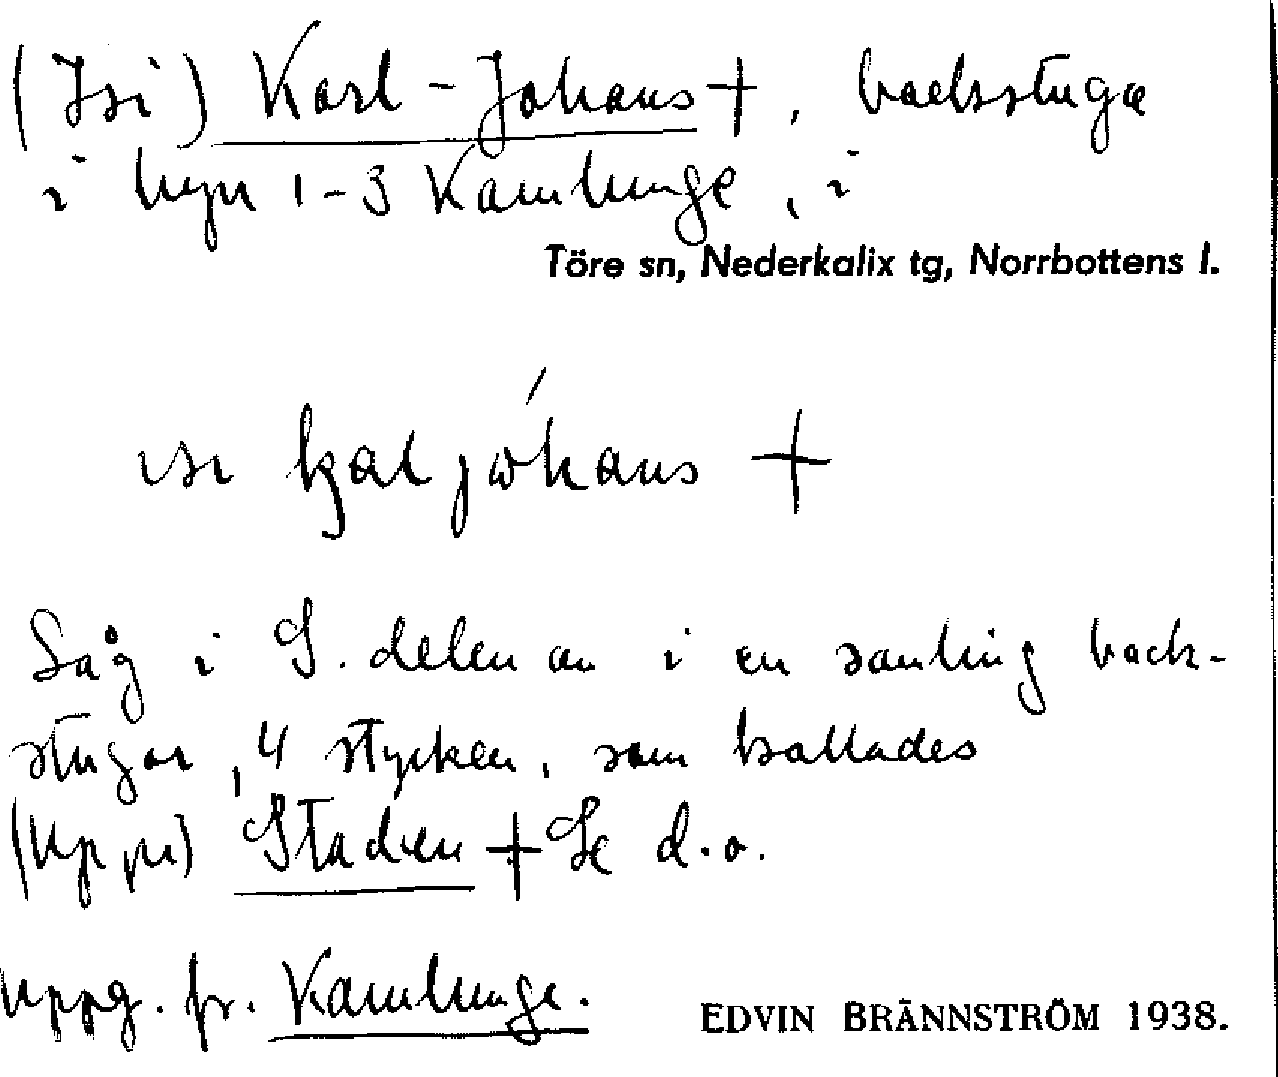 (Isi) Karl-Johans +, backstuga
i byn 1-3 Kamlunge, i
Töre sn, Nederkalix tg, Norrbottens l.
ɪsɪ kal jóhans +
Låg i S. delen av i en samling back-
stugor, 4 stycken, som kallades
(Uppi) Staden + Se d.o.
Uppg. fr. Kamlunge.
EDVIN BRÄNNSTRÖM 1938.